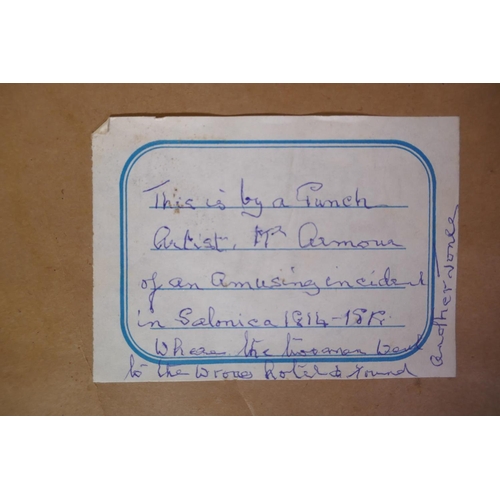 This is by a Punch
Artist, Mr Armour
of an amusing incident
in Salonica 1914-18
Where the two men went
to the wrong hotel & found
another